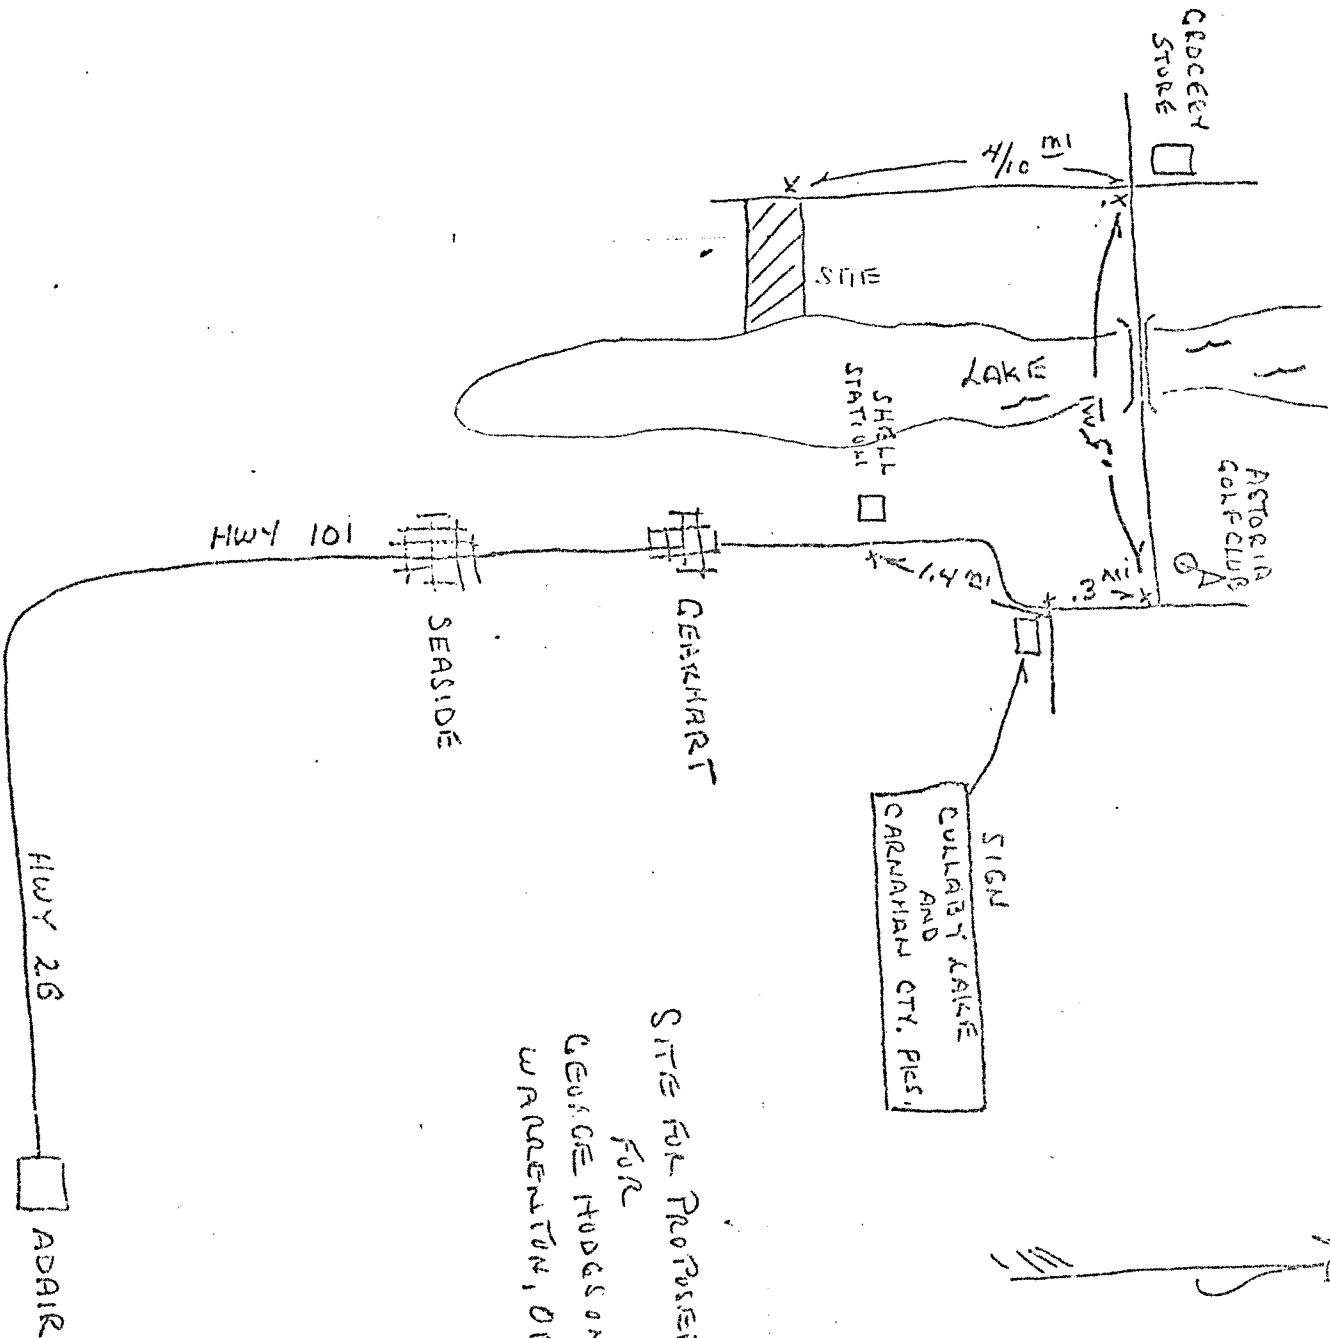 GROCERY
STORE
4/10 mi
SITE
LAKE
.5 mi
ASTORIA
GOLF CLUB
SHELL
STATION
1.4 mi
.3 mi
HWY 101
SEASIDE
GEARHART
SIGN
CULLABY LAKE
AND
CARNAHAN CTY. PKS.
HWY 26
ADAIR
SITE FOR PROPOSED
FOR
GEORGE HODGSON
WARRENTON, OR